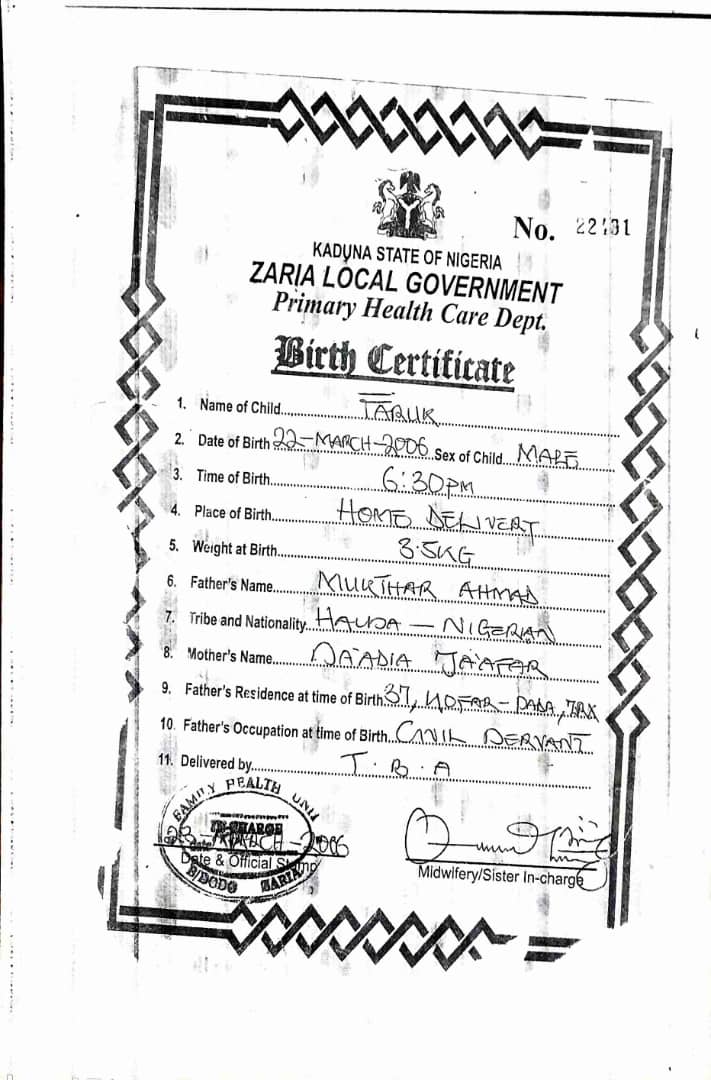 No. 22131
KADUNA STATE OF NIGERIA
ZARIA LOCAL GOVERNMENT
Primary Health Care Dept.
Birth Certificate
1. Name of Child TARUK
2. Date of Birth 22-MARCH-2006 Sex of Child MALE
3. Time of Birth 6:30PM
4. Place of Birth HOME DELIVERY
5. Weight at Birth 3.5KG
6. Father's Name MUKTHAR AHMAD
7. Tribe and Nationality HAUSA - NIGERIAN
8. Mother's Name JA'AFAR
9. Father's Residence at time of Birth 37, KOFAR-
10. Father's Occupation at time of Birth CIVIL SERVANT
11. Delivered by T.B.A
FAMILY HEALTH UNIT
IN-CHARGE
23-MARCH-2006
Date & Official Stamp
ZARIA
Midwifery/Sister In-charge